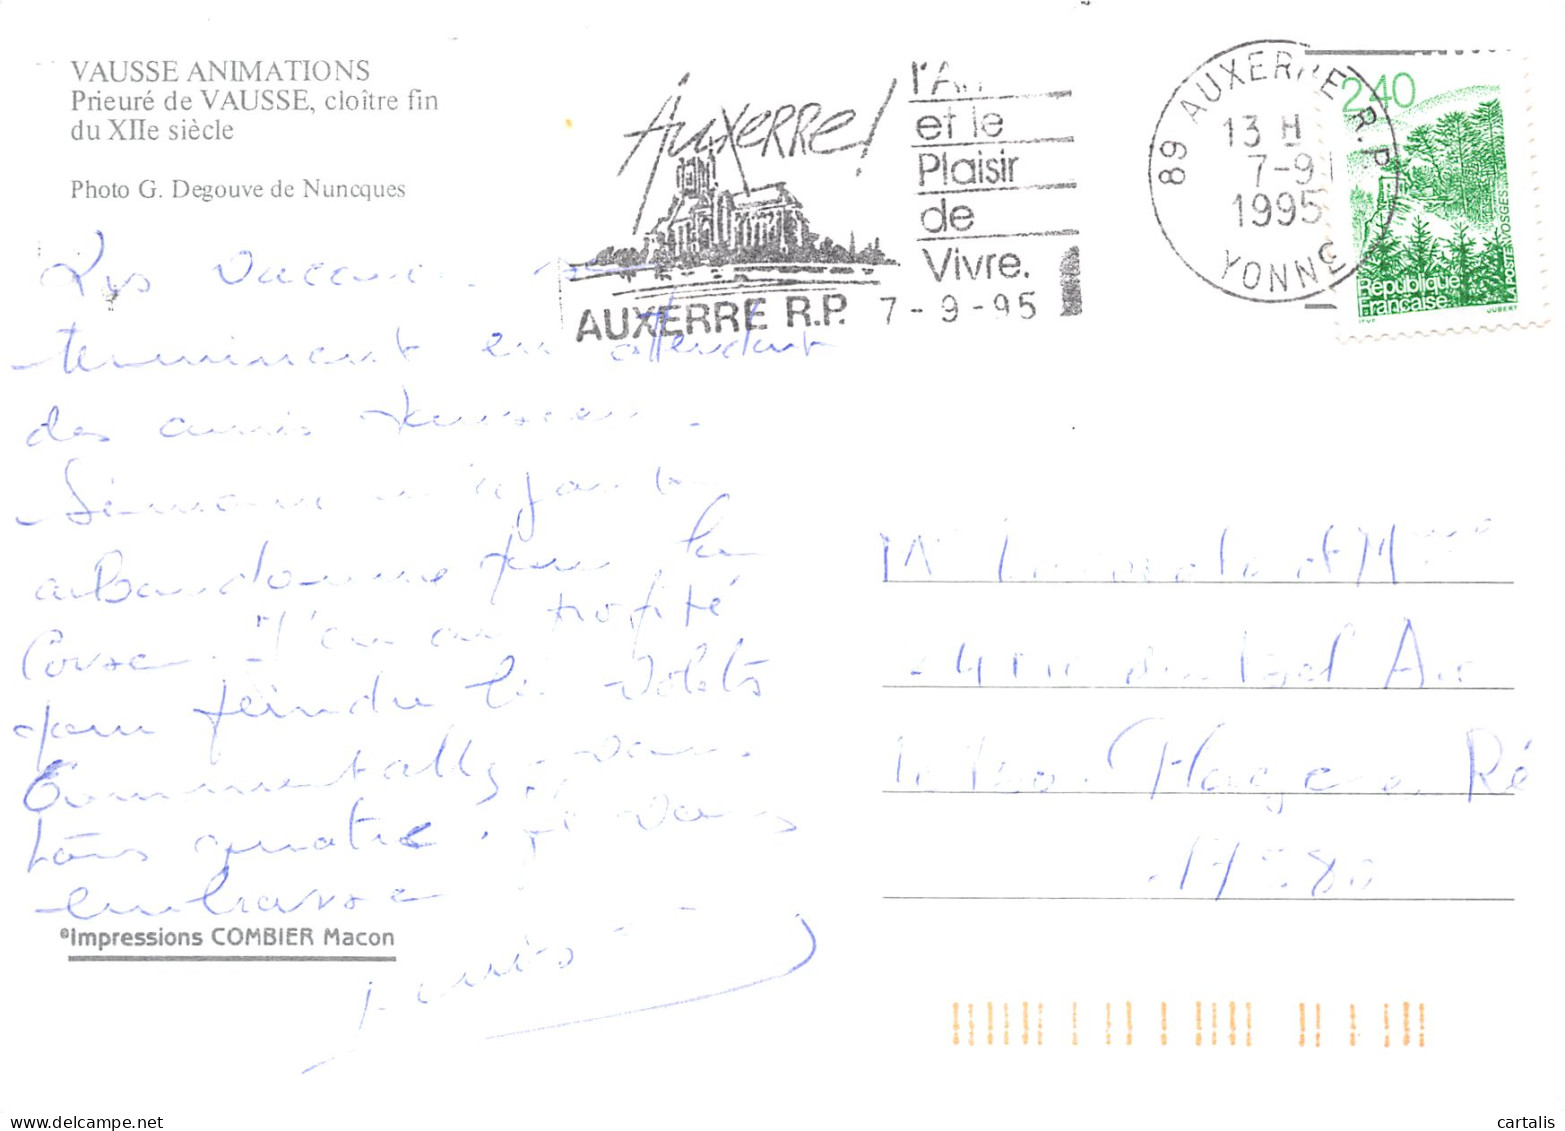 VAUSSE ANIMATIONS
Prieuré de VAUSSE, cloître fin
du XIIe siècle
Photo G. Degouve de Nuncques
Auxerre!
l'Art
et le
Plaisir
de
Vivre.
AUXERRE R.P. 7-9-95
89 AUXERRE R.P.
13 H
7-9
1995
YONNE
2,40
République
Française
LA POSTE VOSGES
ITVF
JUBERT
Les vacances se
terminent en attendant
des amis
abandonnée pour la
Corse. J'en ai profité
pour peindre les volets
Comment allez-vous
tous quatre. Je vous
embrasse
Mr et Mme
du Bel Air
Plage en Ré
17580
©Impressions COMBIER Macon
cartalis